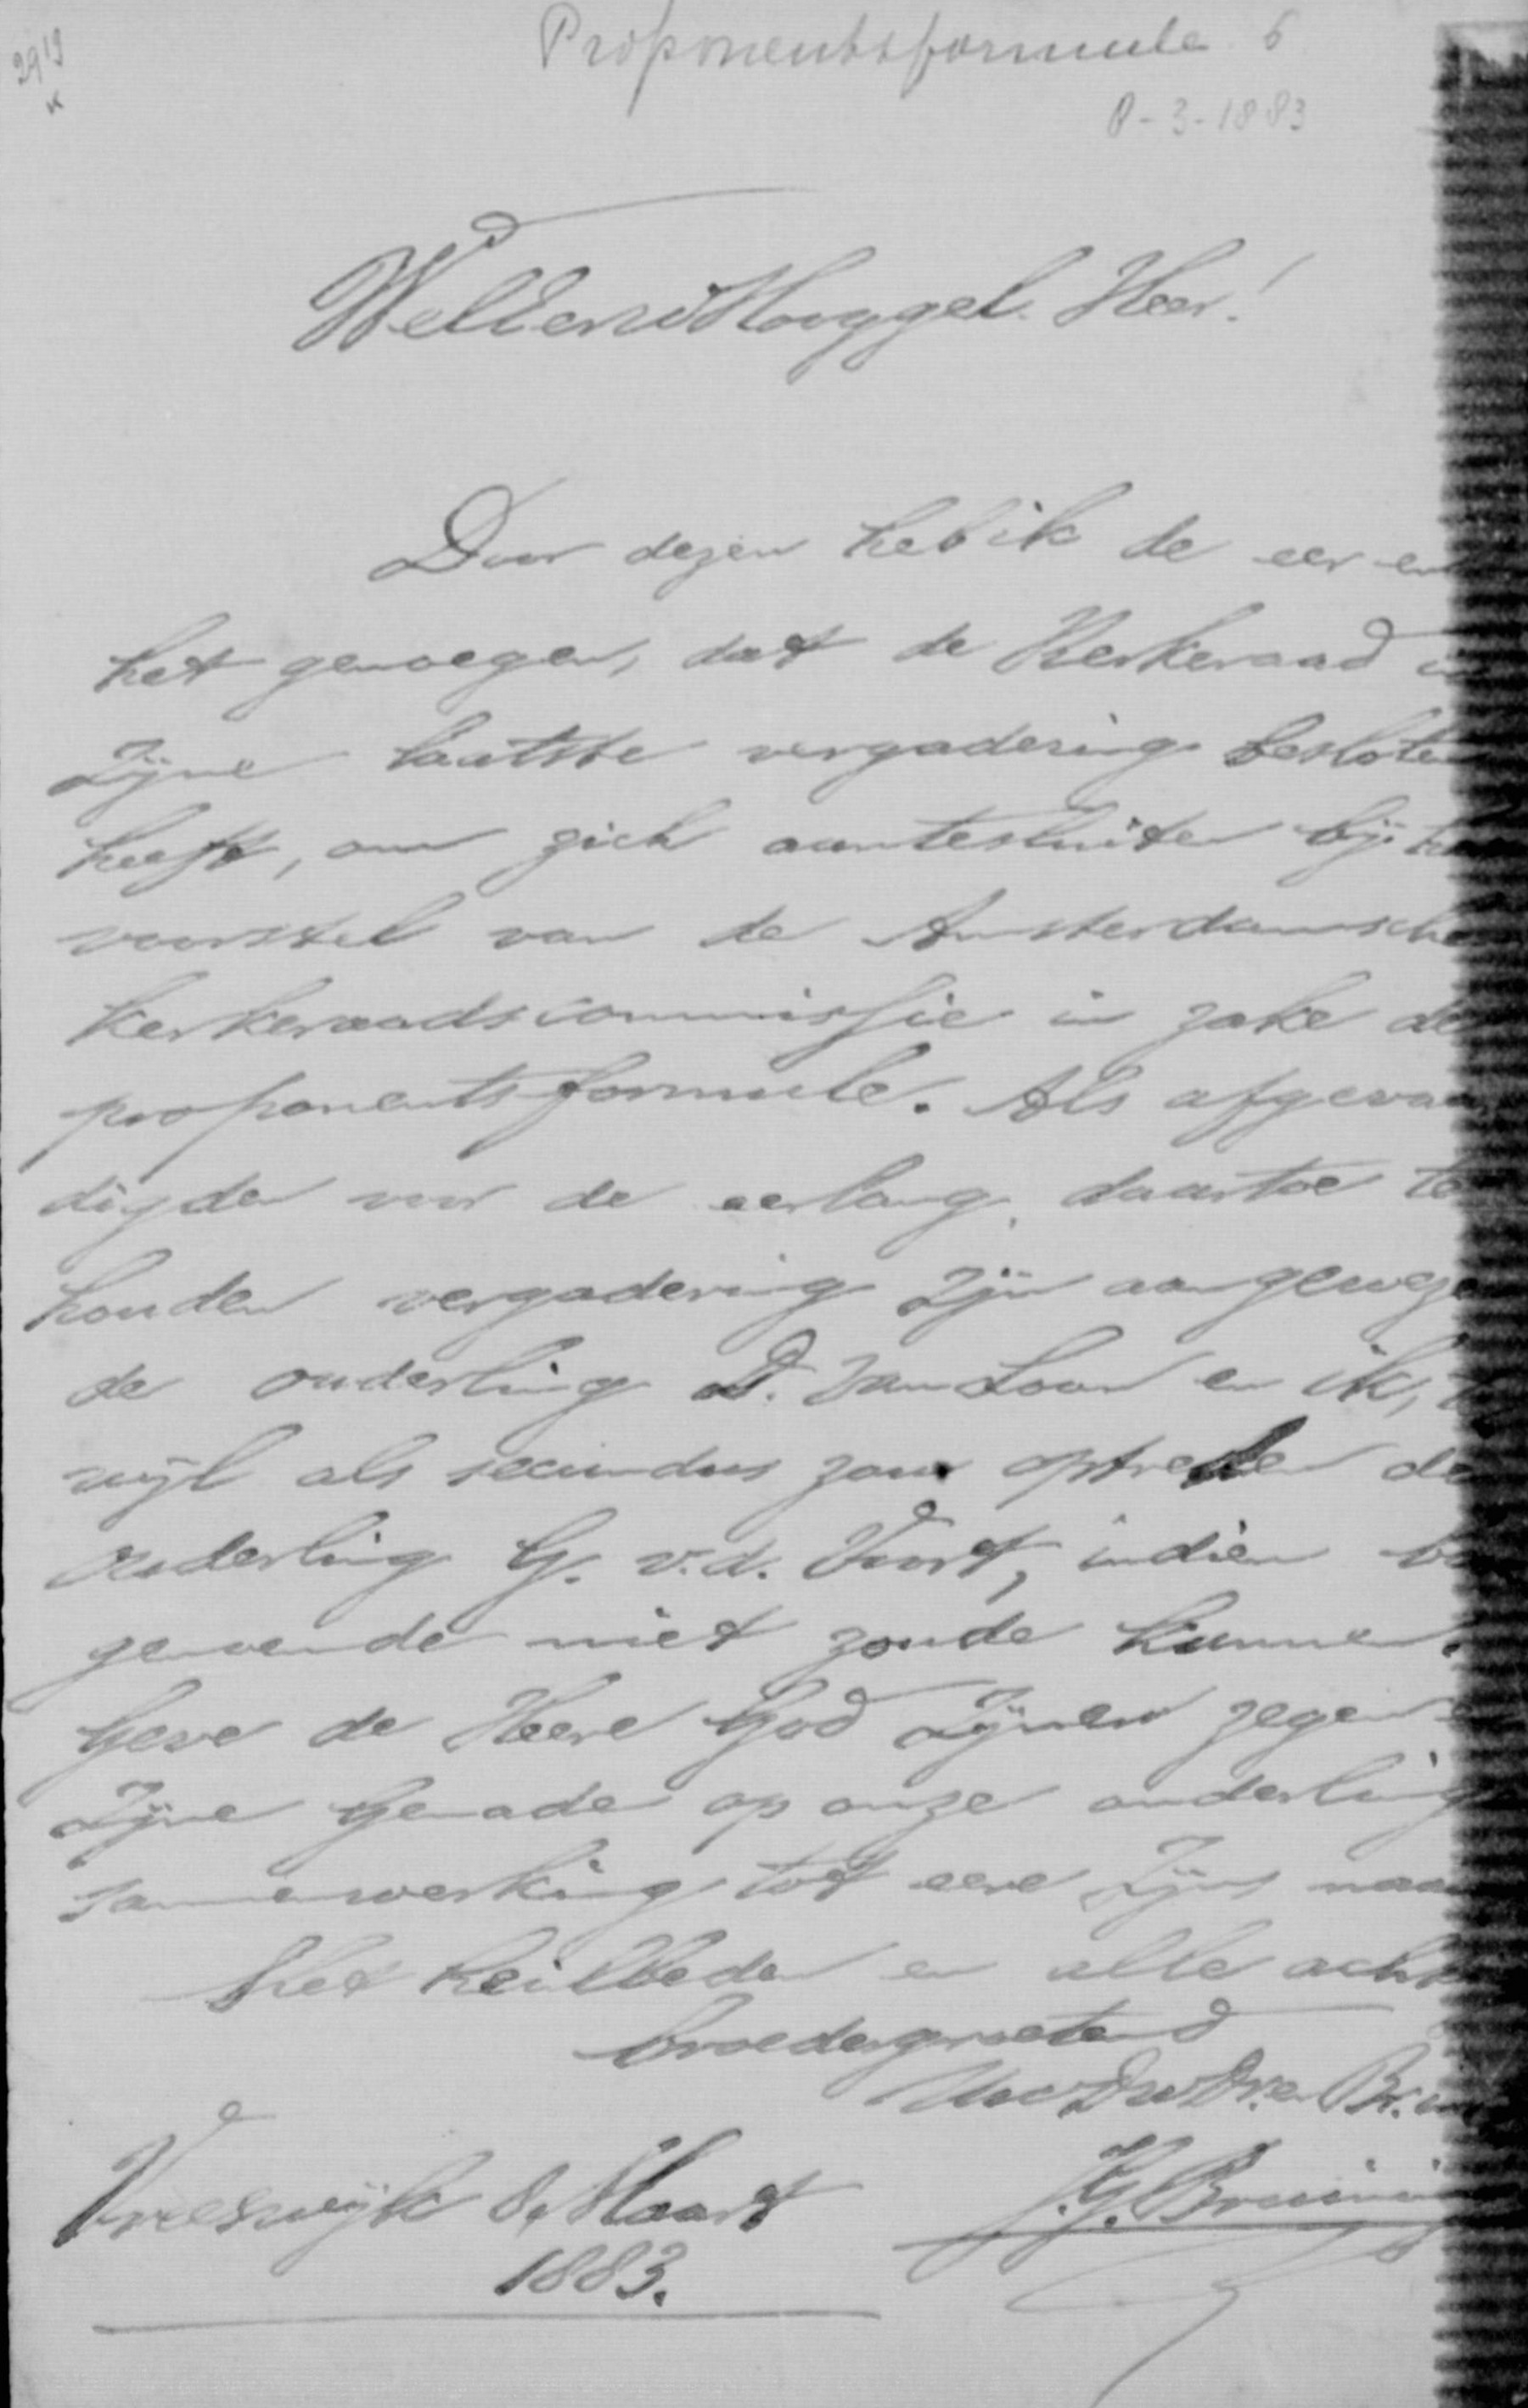 2919
Proponentsformule 6
8-3-1883
WelEerwHooggel. Heer!
Door dezen heb ik de eer en
het genoegen, dat de Kerkeraad
Zijne laatste vergadering beslote
heeft, om zich aantesluiten bij
voorstel van de Amsterdamsche
kerkeraadscommissie in zake de
proponentsformule. Als afgevaar
digden voor de eerlang daartoe te
houden vergadering zijn aangeweze
de ouderling D. van Loon en ik,
wijl als secundus zou optreden de
ouderling G. v.d. Voort, indien
genoemde niet zoude kunnen.
Geve de Heere God Zijnen zegen
Zijne genade op onze onderling
samenwerking tot eere Zijns naam
Met heilbede en alle acht
broedergroetend
UwDwDr. en Br.
J.G. Bruinin
Vreeswijk 8 Maart
1883.